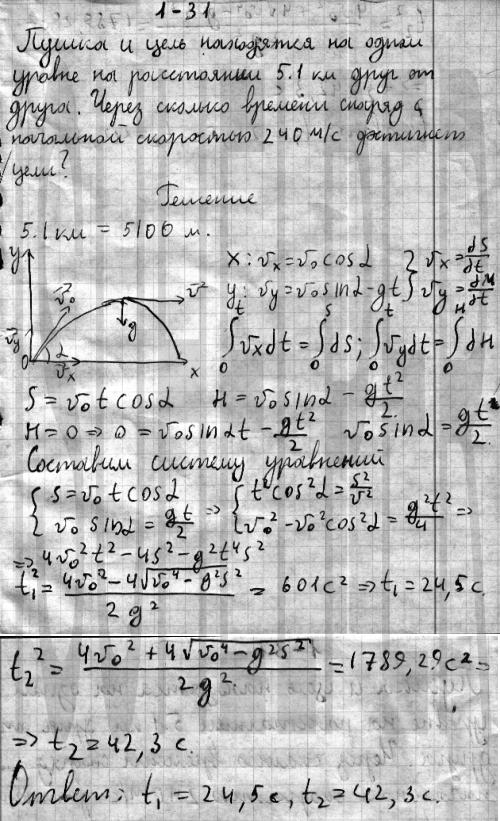 1-31
Пушка и цель находятся на одном
уровне на расстоянии 5.1 км друг от
друга. Через сколько времени снаряд с
начальной скоростью 240 м/с достигнет
цели?
Решение
5.1 км = 5100 м.
y
v⃗₀
v⃗
g
v⃗y
α
0
v⃗x
x
x: vx = v₀ cosα } vx = dS/dt
y: vy = v₀ sinα - gt } vy = dH/dt
∫₀ᵗ vxdt = ∫₀ˢ dS; ∫₀ᵗ vydt = ∫₀ᴴ dH
S = v₀ t cosα H = v₀ sinα - gt²/2
H = 0 ⇒ 0 = v₀ sinαt - gt²/2 v₀ sinα = gt²/2
Составим систему уравнений
{ S = v₀ t cosα ⇒ { t² cos²α = S²/v²
{ v₀ sinα = gt/2 { v₀² - v₀² cos²α = g²t²/4 ⇒
⇒ 4v₀²t² - 4s² - g²t⁴s²
t₁² = (4v₀² - 4√(v₀⁴ - g²s²))/2g² = 601c² ⇒ t₁ = 24,5 c.
t₂² = (4v₀² + 4√(v₀⁴ - g²s²))/2g² = 1789,29c² =
⇒ t₂ = 42,3 c.
Ответ: t₁ = 24,5 c, t₂ = 42,3 c.